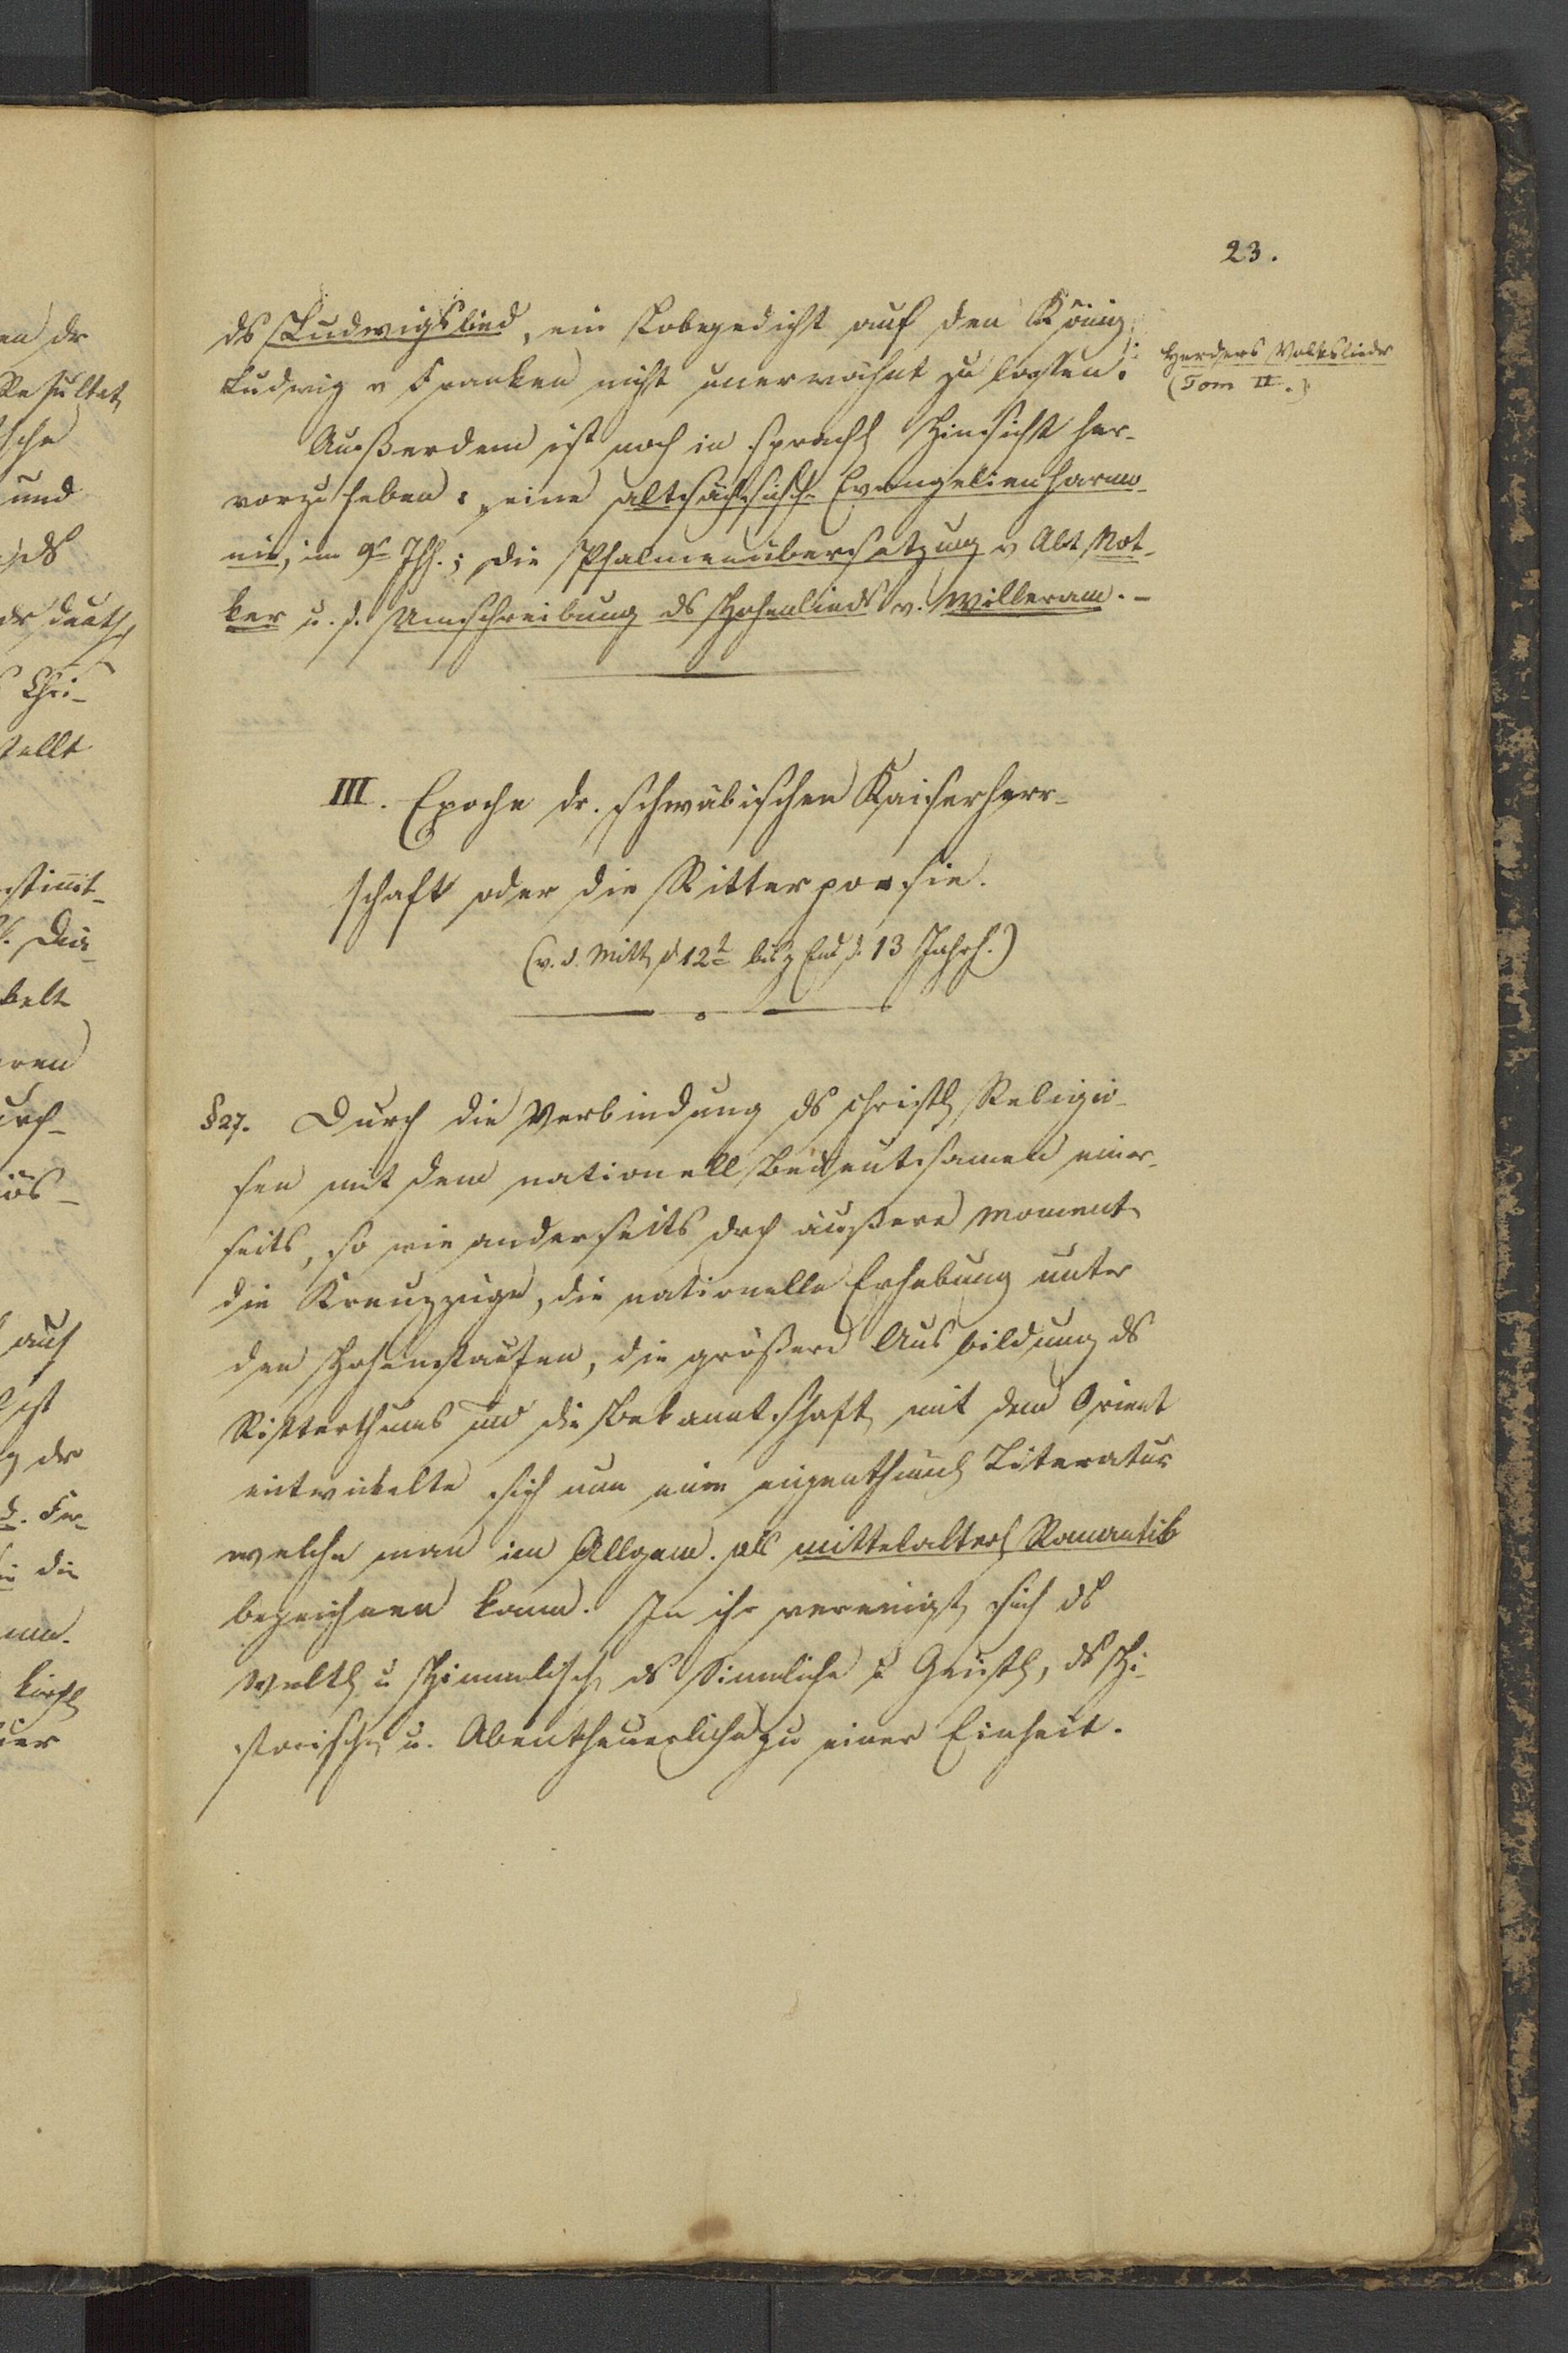 23.
ds Ludwigslied, ein Lobgedicht auf den König
Ludwig v Franken nicht unerwähnt zu lassen.
Herders Volkslieder
(Tom II.)
Außerdem ist noch in sprachl Hinsicht her-
vorzuheben: eine altsächsische Evangelienharmo-
nie, im 9t Jhh.; die Psalmenübersetzung v Abt Not-
ker u. d. Umschreibung ds Hohenlieds v. Willeram. -
III. Epoche dr. schwäbischen Kaiserherr-
schaft oder die Ritterpoesie.
(v. d. Mitte d 12t bis z End d. 13 Jahrh.)
§ 27. Durch die Verbindung ds christl Religiö-
sen mit dem nationell Bedeutsamen einer-
seits, so wie anderseits drch äußere Momente
die Kreuzzüge, die nationelle Erhebung unter
den Hohenstaufen, die größere Ausbildung ds
Ritterthums und die Bekanntschaft mit dem Orient
entwickelte sich nun eine eigenthüml Literatur
welche man im Allgem. als mittelalterl Romantik
bezeichnen kann. In ihr vereinigt sich ds
Weltl u Himmlische ds Sinnliche u Geistl, ds Hi-
storische u. Abentheuerliche zu einer Einheit.